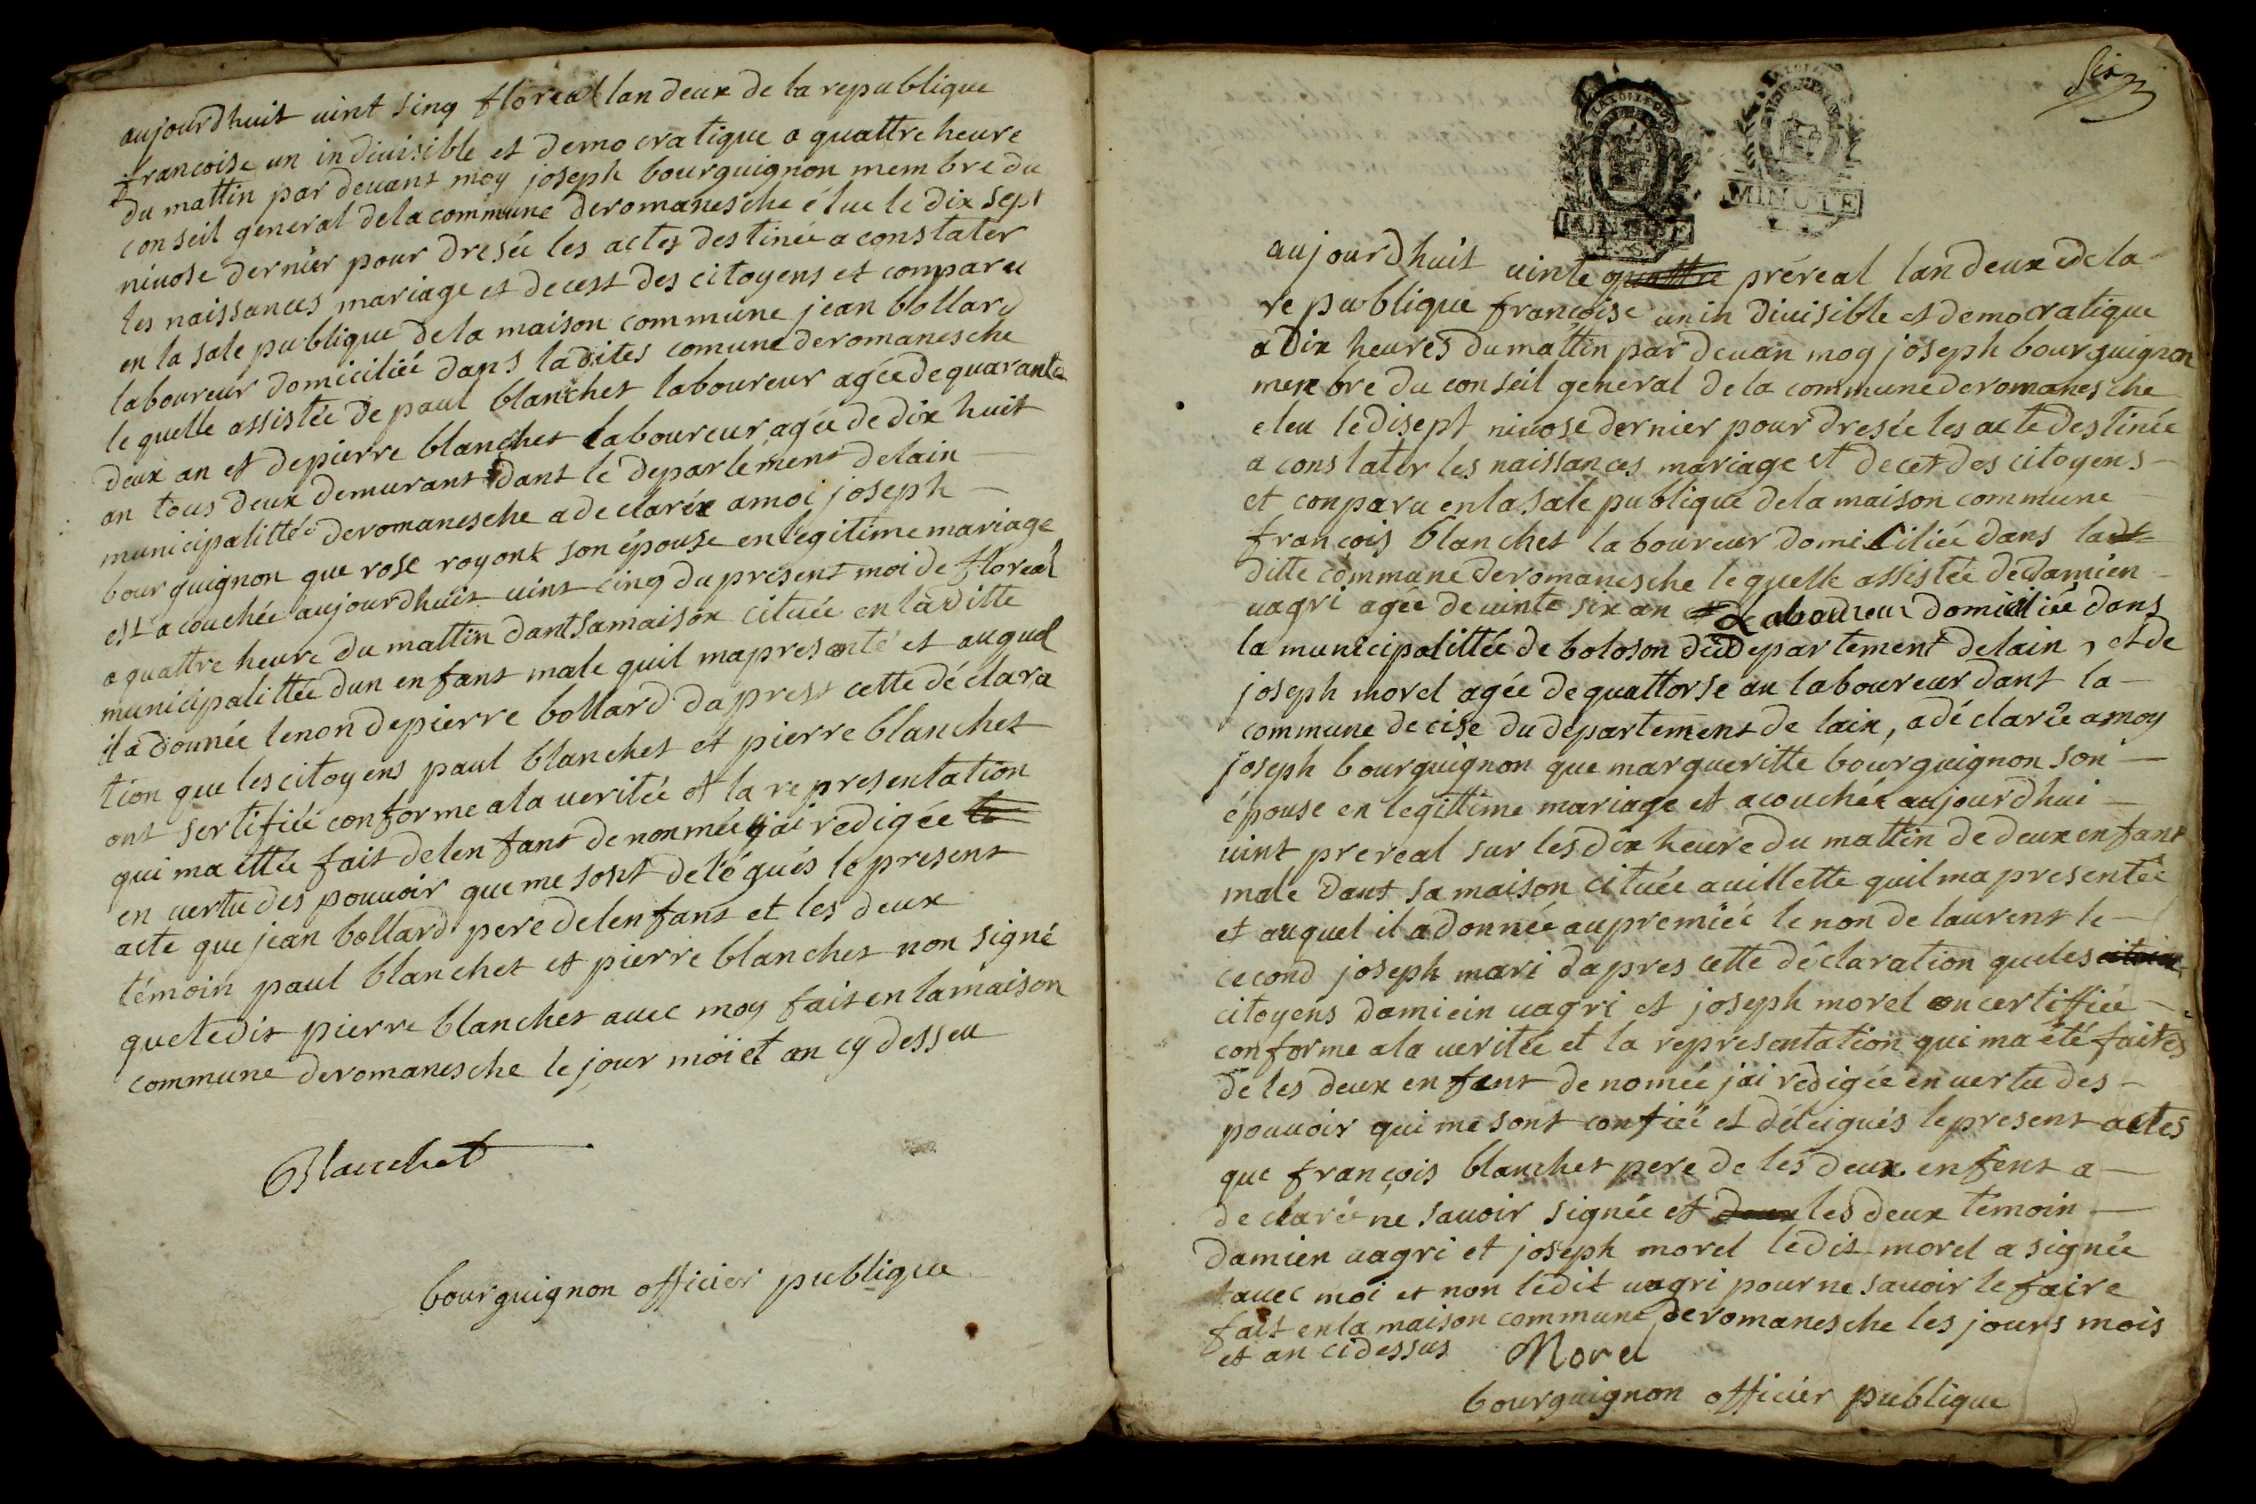 aujourdhuit uint sinq floreal lan deux de la republique
francoise un indiuisible et democratique a quattre heure
du mattin par deuant moy joseph bourguignon membre du
conseil general dela commune deromanesche élue le dix sept
niuose dernier pour dresée les actes destinée a constater
les naissances mariage et decest des citoyens et comparu
en la sale publique dela maison commune jean bollard
laboureur domiciliée dans ladites comune deromanesche
le quelle assistée de paul blanchet laboureur agée de quarante
deux an et de pierre blanchet laboureur agée de dix huit
an tous deux demurant dant le departement delain
municipalittée deromanesche a declarée amoi joseph
bourguignon que rose royont son épouse en legitime mariage
est acouchée aujourdhuit uint cinq du present moi de floreal
a quattre heure du mattin dant samaison cituée en laditte
municipalittée dun enfant male quil mapresanté et auquel
il a donnée lenon depierre bollard daprest cette déclara
tion que les citoyens paul blanchet et pierre blanchet
ont sertifiée conforme ala ueritée et la representation
qui ma ettée fait delenfant denonmée jai redigée
en uertu des pouuoir que me sont delégués le present
acte que jean bollard pere delenfant et les deux
témoin paul blanchet et pierre blanchet non signé
queledit pierre blanchet auec moy fait en lamaison
commune deromanesche le jour moi et an cy desseu
Blanchet
bourguignon officier publique
six
MINUTE
MINUTE
aujourdhuit uinte quattre préreal lan deux dela
republique françoise un in diuisible et democratique
a dix heures du mattin par deuan moy joseph bourguignon
menbre du conseil general dela commune deromanesche
eleu ledisept niuose dernier pour dresée les acte destinée
a constater les naissances mariage et decet des citoyens
et conparu en la sale publique dela maison commune
françois blanchet laboureur domiciliée dans la
ditte commune deromanesche le quelle assistée de damien
uagri agée de uinte six an Laboureur domiciliée dans
la municipalittée de boloson du departement delain, et de
joseph morel agée de quattorse an laboureur dant la
commune de cise du departement de lain, a déclarée amoy
joseph bourguignon que margueritte bourguignon son
épouse en legittime mariage et acouchée aujourdhui
uint prereal sur les dix heure du mattin de deux enfant
male dant sa maison cituée auillette quil ma presentée
et auquel il a donnée au premiée le non de laurent le
cecond joseph mari dapres cette déclaration queles
citoyens damiein uagri et joseph morel on certiffiée
conforme ala ueritée et la representation qui ma été faites
de les deux enfent denomée jai redigée en uertu des
pouuoir qui me sont confiée et déleigués le present actes
que françois blanchet pere de les deux enfent a
declarée ne sauoir signée et deux les deux témoin
damien uagri et joseph morel ledit morel a signée
auec moi et non ledit uagri pour ne sauoir le faire
fait en la maison commune deromanesche les jours mois
et an cidessus Morel
bourguignon officier publique